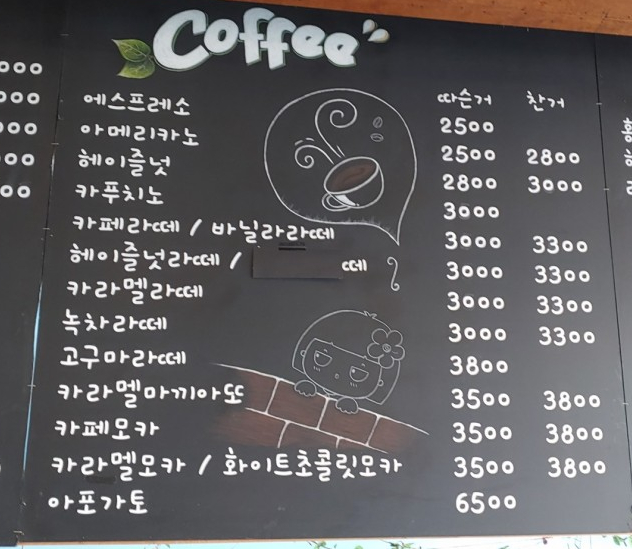 Coffee
따슨거 찬거
에스프레소 2500
아메리카노 2500 2800
헤이즐넛 2800 3000
카푸치노 3000
카페라떼 / 바닐라라떼 3000 3300
헤이즐넛라떼 / 떼 3000 3300
카라멜라떼 3000 3300
녹차라떼 3000 3300
고구마라떼 3800
카라멜마끼아또 3500 3800
카페모카 3500 3800
카라멜모카 / 화이트초콜릿모카 3500 3800
아포가토 6500